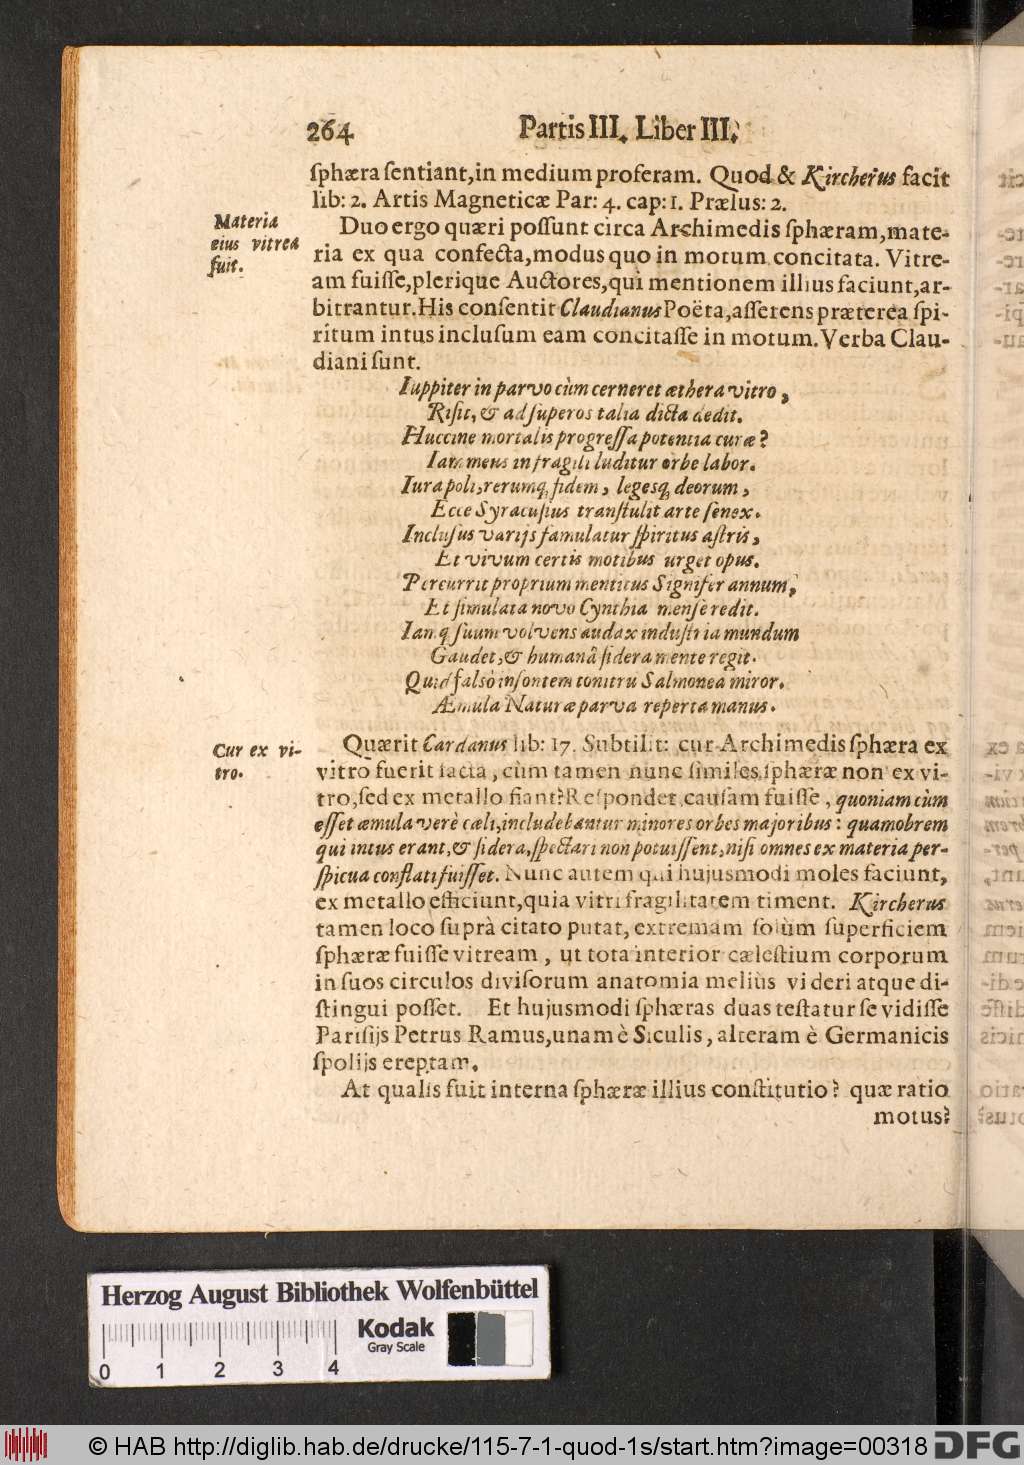 264 Partis III. Liber III.
sphæra sentiant, in medium proferam. Quod & Kircherus facit
lib: 2. Artis Magneticæ Par: 4. cap: 1. Prælus: 2.
Materia
eius vitrea
fuit.
Duo ergo quæri possunt circa Archimedis sphæram, mate-
ria ex qua confecta, modus quo in motum concitata. Vitre-
am fuisse, plerique Auctores, qui mentionem illius faciunt, ar-
bitrantur. His consentit Claudianus Poëta, asserens præterea spi-
ritum intus inclusum eam concitasse in motum. Verba Clau-
diani sunt.
Iuppiter in parvo cùm cerneret æthera vitro,
Risit, & ad superos talia dicta dedit.
Huccine mortalis progressa potentia curæ?
Iam meus in fragili luditur orbe labor.
Iura poli, rerumq; fidem, legesq; deorum,
Ecce Syracusius transtulit arte senex.
Inclusus varijs famulatur spiritus astris,
Et vivum certis motibus urget opus.
Percurrit proprium mentitus Signifer annum,
Et simulata novo Cynthia mense redit.
Iamq; suum volvens audax industria mundum
Gaudet, & humanâ sidera mente regit.
Quid falsò insontem tonitru Salmonea miror.
Æmula Naturæ parva reperta manus.
Cur ex vi-
tro.
Quærit Cardanus lib: 17. Subtilit: cur Archimedis sphæra ex
vitro fuerit facta, cùm tamen nunc similes sphæræ non ex vi-
tro, sed ex metallo fiant? Respondet, causam fuisse, quoniam cùm
esset æmula verè cæli, includebantur minores orbes majoribus: quamobrem
qui intus erant, & sidera, spectari non potuissent, nisi omnes ex materia per-
spicua conflati fuisset. Nunc autem qui hujusmodi moles faciunt,
ex metallo efficiunt, quia vitri fragilitatem timent. Kircherus
tamen loco suprà citato putat, extremam solùm superficiem
sphæræ fuisse vitream, ut tota interior cælestium corporum
in suos circulos divisorum anatomia meliùs videri atque di-
stingui posset. Et hujusmodi sphæras duas testatur se vidisse
Parisijs Petrus Ramus, unam è Siculis, alteram è Germanicis
spolijs ereptam.
At qualis fuit interna sphæræ illius constitutio? quæ ratio
motus?
Herzog August Bibliothek Wolfenbüttel
Kodak
Gray Scale
0 1 2 3 4
© HAB http://diglib.hab.de/drucke/115-7-1-quod-1s/start.htm?image=00318 DFG